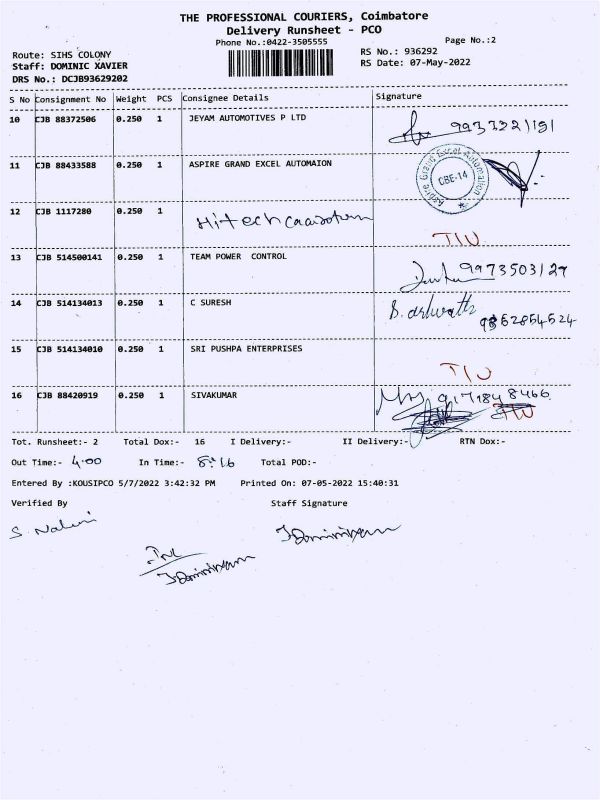 THE PROFESSIONAL COURIERS, Coimbatore
Delivery Runsheet - PCO
Phone No.:0422-3505555 Page No.:2
Route: SIHS COLONY RS No.: 936292
Staff: DOMINIC XAVIER RS Date: 07-May-2022
DRS No.: DCJB93629202
S No Consignment No Weight PCS Consignee Details Signature
10 CJB 88372506 0.250 1 JEYAM AUTOMOTIVES P LTD 9933221191
11 CJB 88433588 0.250 1 ASPIRE GRAND EXCEL AUTOMAION
Aspire Grand Excel Automation CBE-14
12 CJB 1117280 0.250 1 Hitech
T/U
13 CJB 514500141 0.250 1 TEAM POWER CONTROL 9973503127
14 CJB 514134013 0.250 1 C SURESH 9862854524
15 CJB 514134010 0.250 1 SRI PUSHPA ENTERPRISES
T/U
16 CJB 88420919 0.250 1 SIVAKUMAR 9171848466
T/U
Tot. Runsheet:- 2 Total Dox:- 16 I Delivery:- II Delivery:- RTN Dox:-
Out Time:- 4.00 In Time:- 8.16 Total POD:-
Entered By :KOUSIPCO 5/7/2022 3:42:32 PM Printed On: 07-05-2022 15:40:31
Verified By Staff Signature
S. Nalini